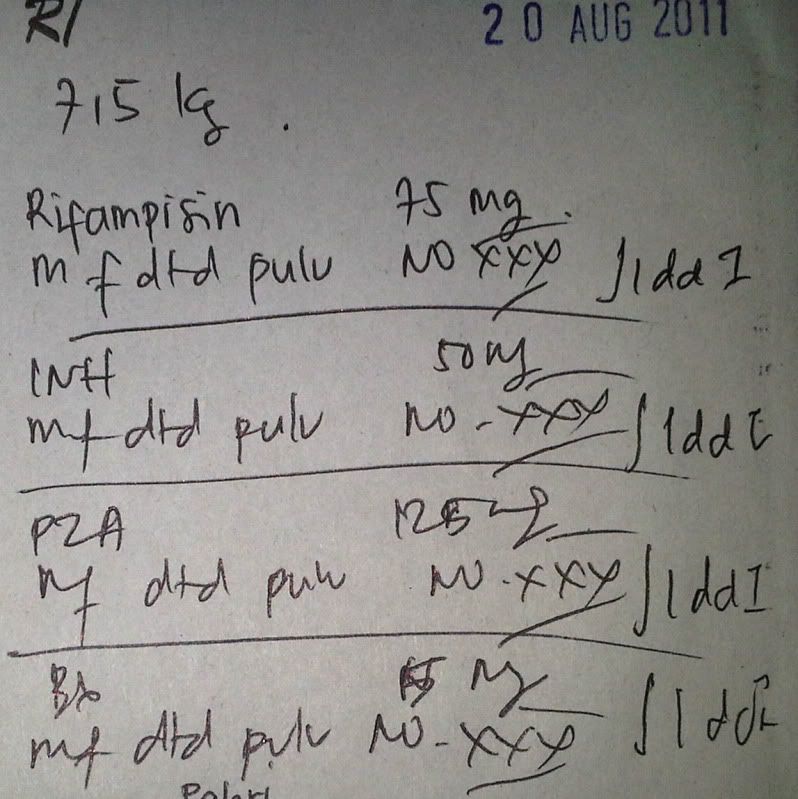 R/ 20 AUG 2011
7,5 kg.
Rifampisin 75 mg.
m f dtd pulv NO XXX ∫ 1 dd I
INH 50 mg
mf dtd pulv NO - XXX ∫ 1 dd I
PZA 125 mg
mf dtd pulv NO. XXX ∫ 1 dd I
mg
mf dtd pulv NO - XXX ∫ 1 dd